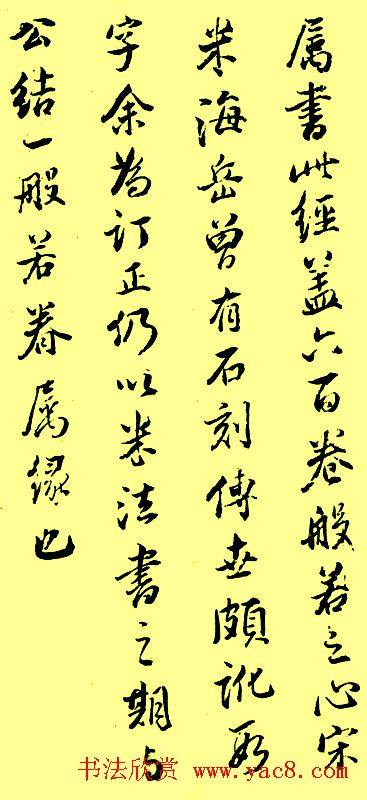 属書此經蓋六百卷般若之心宋
米海岳曽有石刻傳世頗訛數
字余為訂正仍以米法書之期与
公結一般若眷属緣也
书法欣赏 www.yac8.com